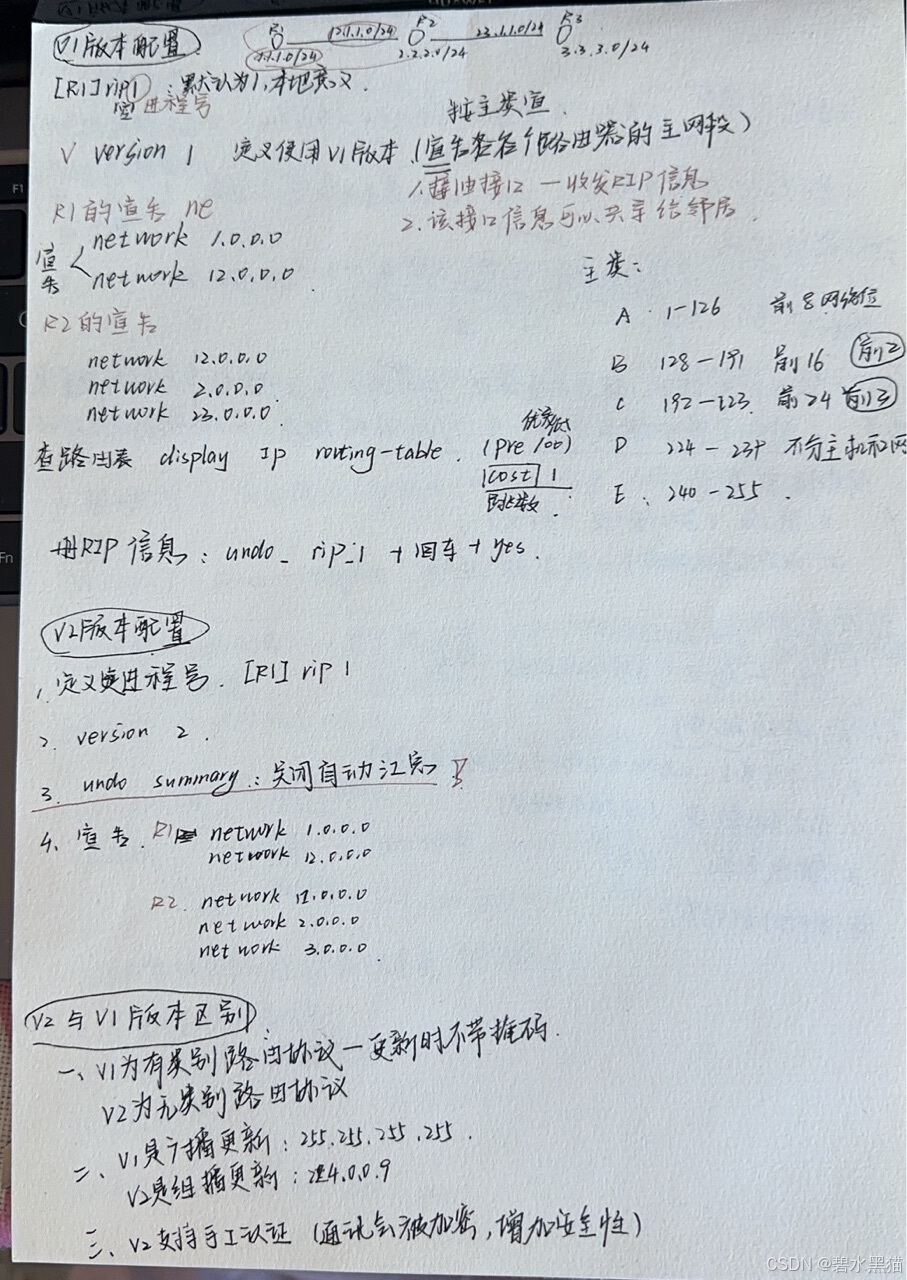 V1版本配置
R1 12.1.1.0/24 R2 23.1.1.0/24 R3
1.1.1.0/24 2.2.2.0/24 3.3.3.0/24
[R1] rip 1 : 默认为1,本地意义.
进程号
按主类宣
V version 1 定义使用V1版本 (宣告各各个路由器的主网段)
1. 接口 — 收发RIP信息
2. 该接口信息可以共享给邻居.
R1的宣告 ne
宣告
network 1.0.0.0
network 12.0.0.0
R2的宣告
network 12.0.0.0
network 2.0.0.0
network 23.0.0.0
主类:
A 1-126 前8网络位
B 128-191 前16 前2
C 192-223 前24 前3
D 224-239 不分主机和网
E. 240-255.
查路由表 display Ip routing-table. (pre 100)
优先
cost 1
跳数
册RIP信息: undo rip 1 + 回车 + yes.
V2版本配置
1. 定义进程号. [R1] rip 1
2. version 2.
3. undo summary: 关闭自动汇总
4. 宣告. R1 network 1.0.0.0
network 12.0.0.0
R2. network 12.0.0.0
network 2.0.0.0
network 3.0.0.0
V2与V1版本区别
一、V1为有类别路由协议 — 更新时不带掩码.
V2为无类别路由协议
二、V1是广播更新: 255.255.255.255.
V2是组播更新: 224.0.0.9
三、V2支持手工认证 (通讯会被加密,增加安全性)
CSDN @碧水黑猫